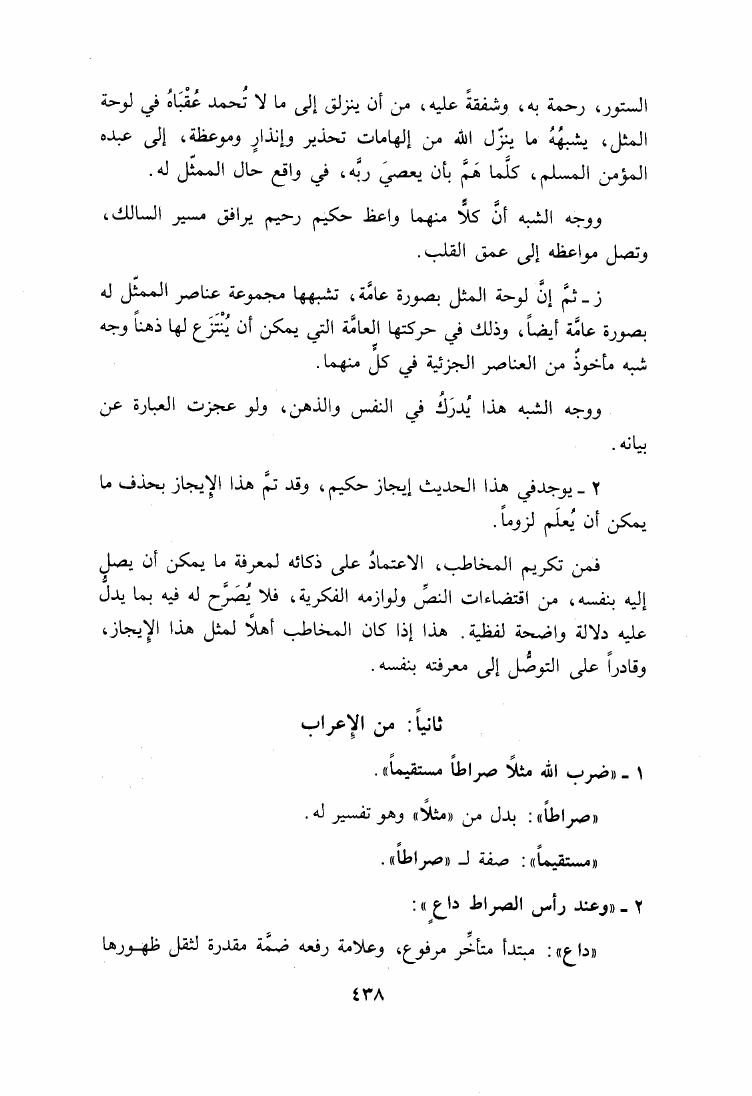 الستور، رحمة به، وشفقةً عليه، من أن ينزلق إلى ما لا تُحمد عُقْبَاهُ في لوحة
المثل، يشبهُهُ ما ينزّل الله من إلهامات تحذير وإنذارٍ وموعظة، إلى عبده
المؤمن المسلم، كلَّما هَمَّ بأن يعصيَ ربَّه، في واقع حال الممثّل له.
ووجه الشبه أنَّ كلاًّ منهما واعظ حكيم رحيم يرافق مسير السالك،
وتصل مواعظه إلى عمق القلب.
ز ـ ثمَّ إنَّ لوحة المثل بصورة عامَّة، تشبهها مجموعة عناصر الممثّل له
بصورة عامَّة أيضاً، وذلك في حركتها العامَّة التي يمكن أن يُنْتَزَع لها ذهناً وجه
شبه مأخوذٌ من العناصر الجزئية في كلٍّ منهما.
ووجه الشبه هذا يُدرَكُ في النفس والذهن، ولو عجزت العبارة عن
بيانه.
٢ ـ يوجدفي هذا الحديث إيجاز حكيم، وقد تمَّ هذا الإيجاز بحذف ما
يمكن أن يُعلَم لزوماً.
فمن تكريم المخاطب، الاعتمادُ على ذكائه لمعرفة ما يمكن أن يصل
إليه بنفسه، من اقتضاءات النصِّ ولوازمه الفكرية، فلا يُصَرَّح له فيه بما يدلُّ
عليه دلالة واضحة لفظية. هذا إذا كان المخاطب أهلاً لمثل هذا الإيجاز،
وقادراً على التوصُّل إلى معرفته بنفسه.
ثانياً: من الإعراب
١ ـ «ضرب الله مثلاً صراطاً مستقيماً».
«صراطاً»: بدل من «مثلاً» وهو تفسير له.
«مستقيماً»: صفة لـ «صراطاً».
٢ ـ «وعند رأس الصراط داعٍ»:
«داع»: مبتدأ متأخِّر مرفوع، وعلامة رفعه ضمَّة مقدرة لثقل ظهورها
٤٣٨